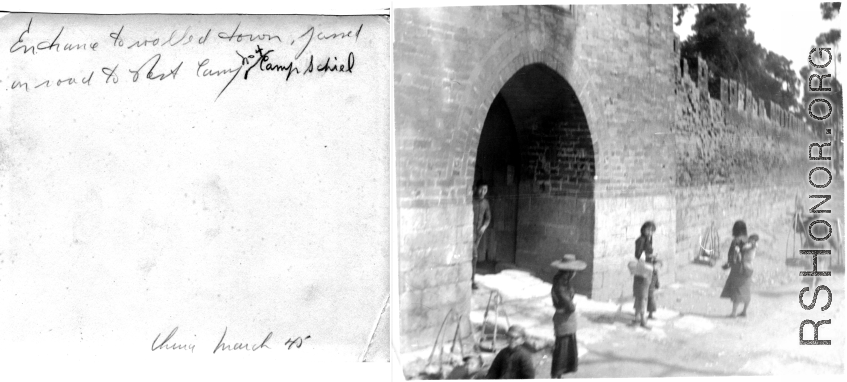 Entrance to walled town, passed
on road to Rest Camp not Camp Schiel
China March 45
RSHONOR.ORG